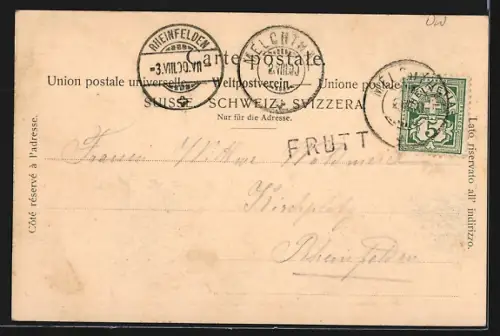 Carte postale.
Union postale universelle. Weltpostverein. Unione postale
SUISSE. SCHWEIZ. SVIZZERA.
Nur für die Adresse.
Côté réservé à l'adresse.
Lato riservato all' indirizzo.
RHEINFELDEN
-3.VIII.00.VII
MELCHTHAL
MELCHTHAL
FRUTT
5
Kirchplatz
Rheinfelden